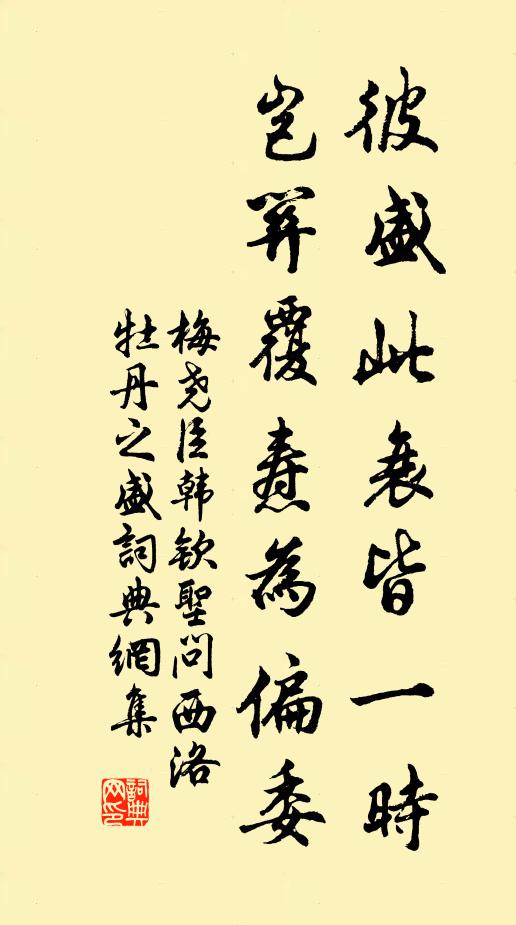 彼盛此衰皆一時
豈關覆燾為偏委
梅堯臣韩欽聖問西洛
牡丹之盛詞典網集
詞典网印